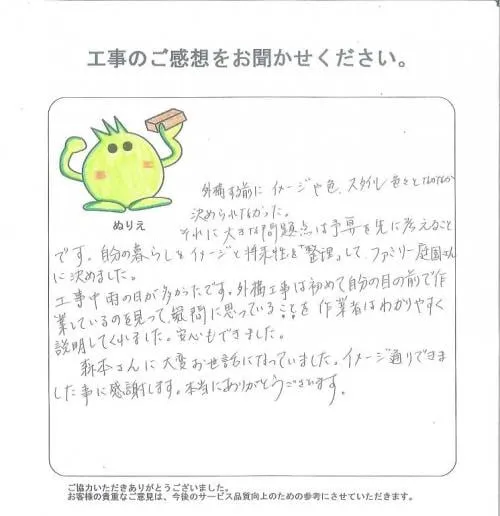 工事のご感想をお聞かせください。
ぬりえ
外構する前にイメージや色、スタイル色々となかなか
決められなかった。
それに大きな問題点は予算を先に考えること
です。自分の暮らしをイメージと将来性を「整理」して、ファミリー庭園さん
に決めました。
工事中雨の日が多かったです。外構工事は初めて自分の目の前で作
業しているのを見って、疑問に思っていることを作業者はわかりやすく
説明してくれました。安心もできました。
森本さんに大変お世話になっていました。イメージ通りできま
した事に感謝します。本当にありがとうございます。
ご協力いただきありがとうございました。
お客様の貴重なご意見は、今後のサービス品質向上のための参考にさせていただきます。